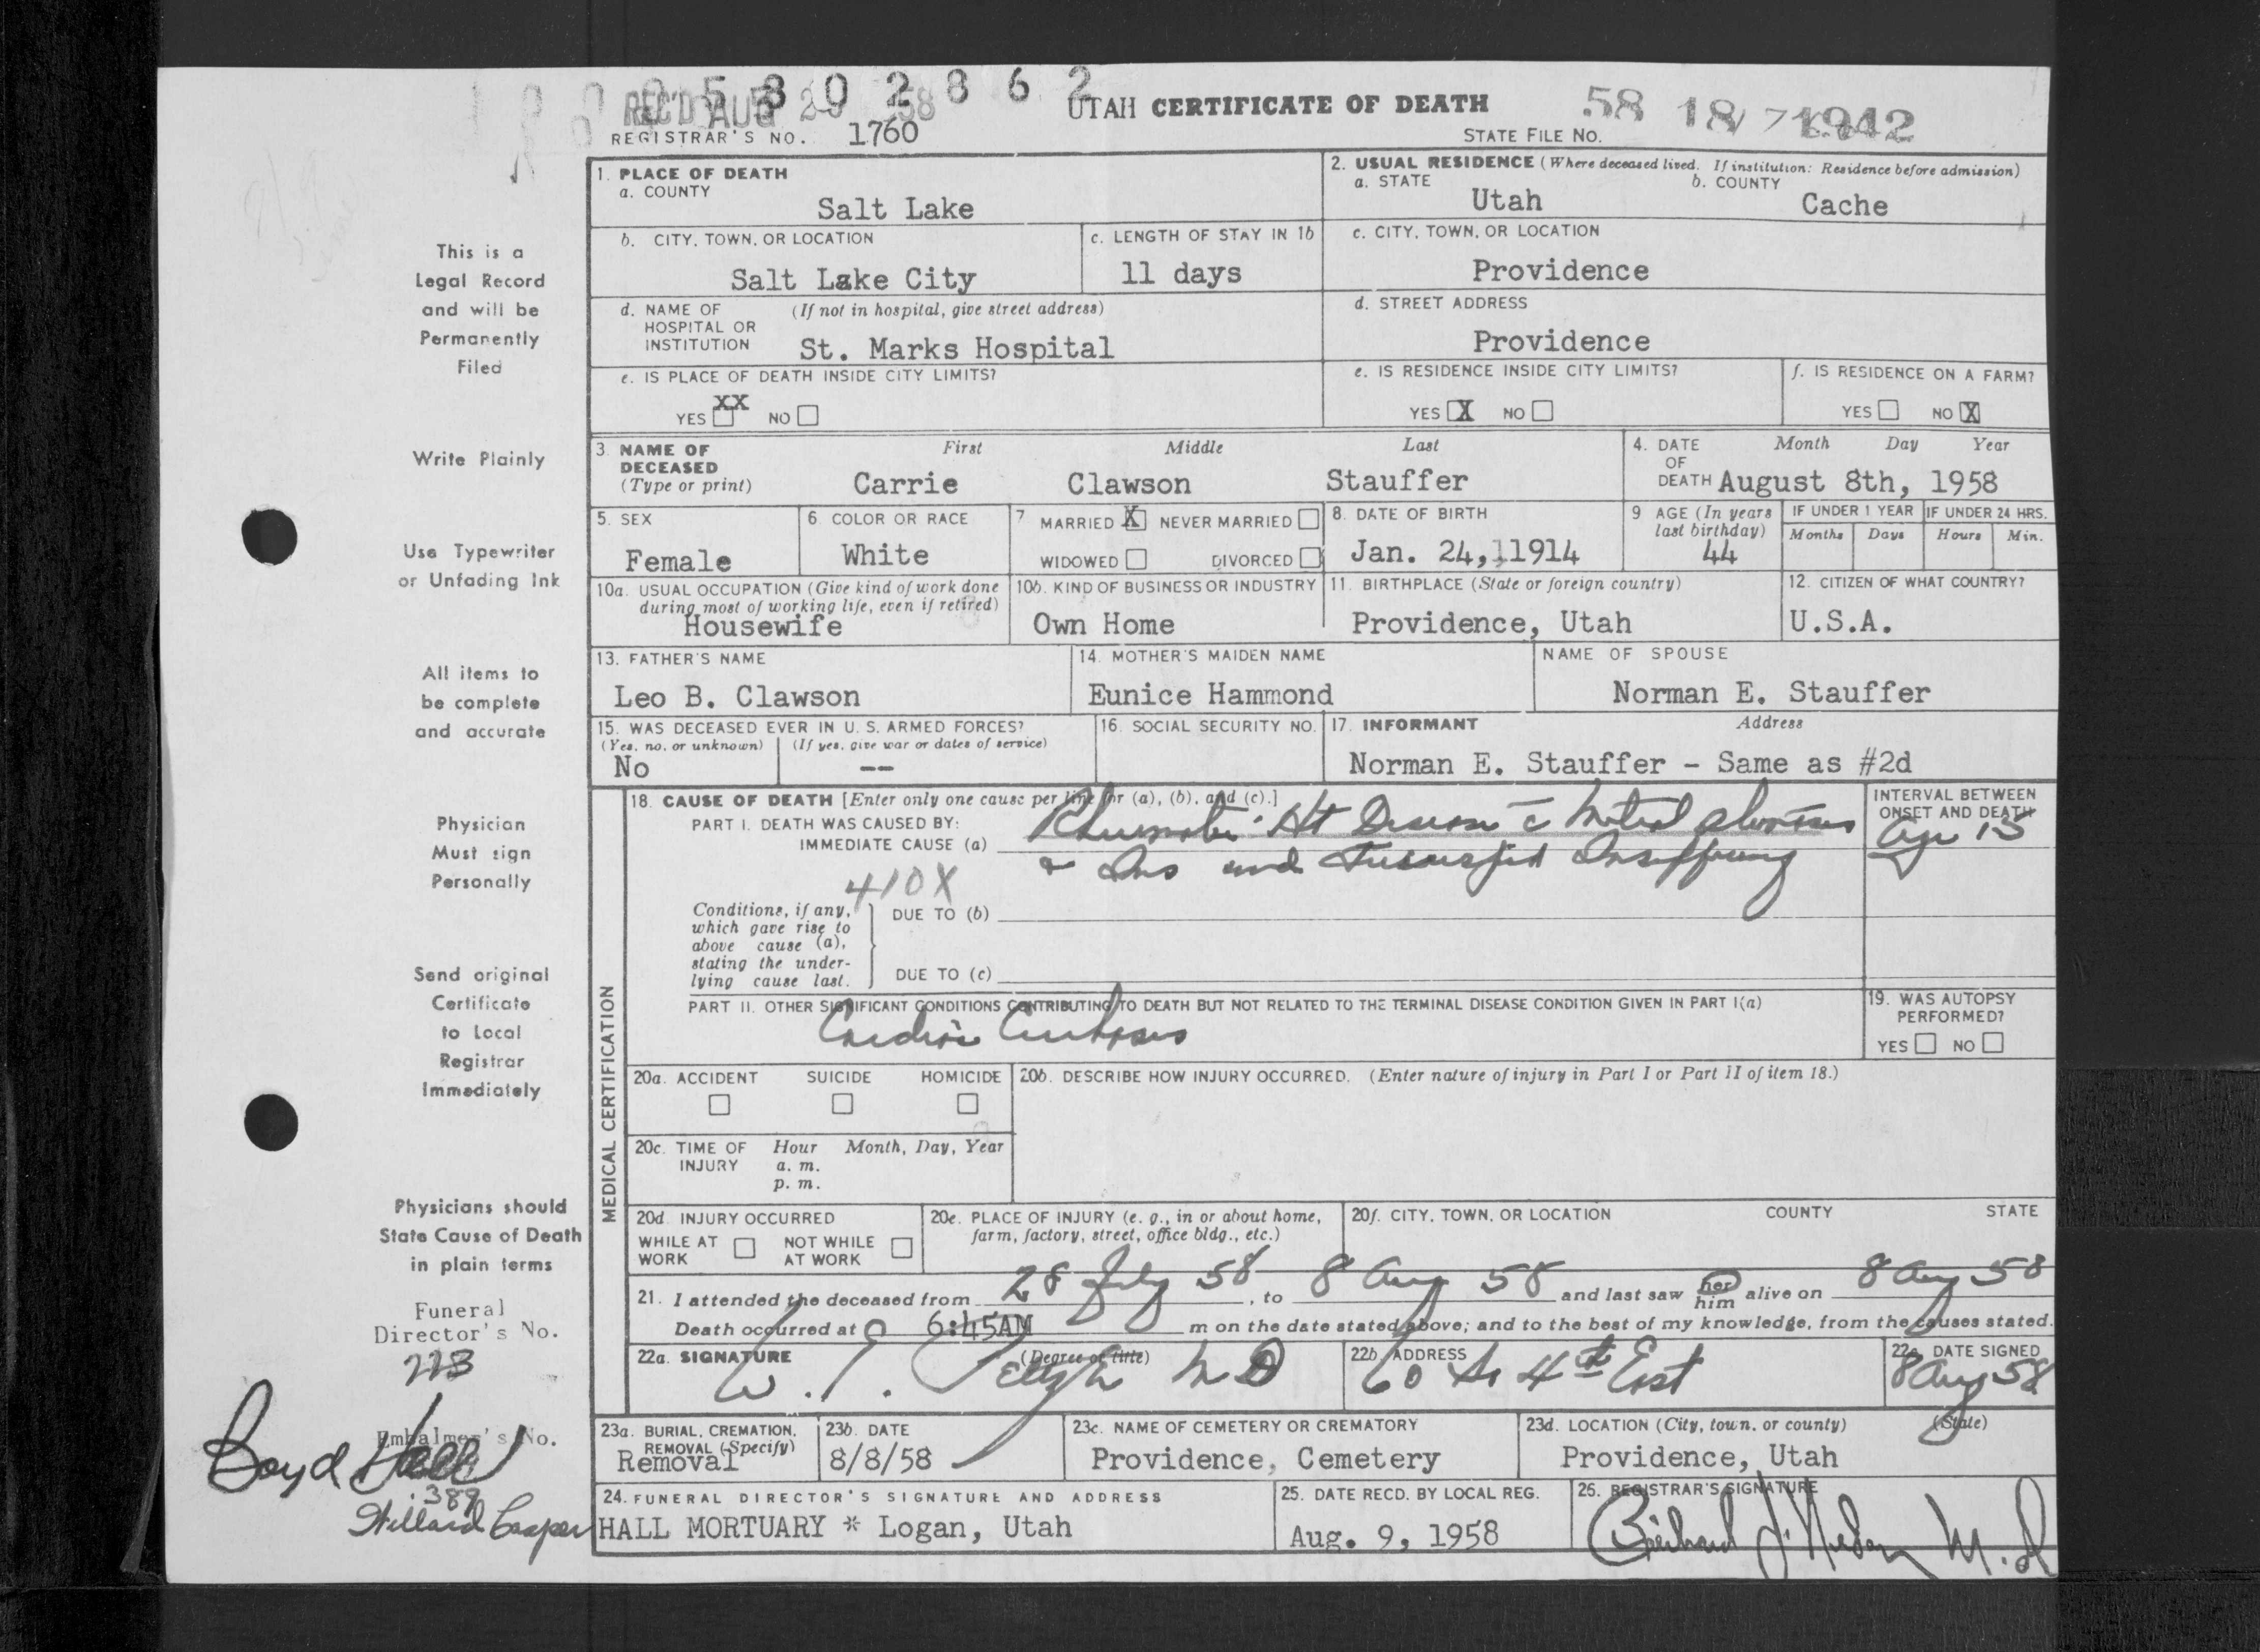 REC'D AUG 2 58
1 0 0 0 5 8 0 2 8 6 2
UTAH CERTIFICATE OF DEATH
58 18
1942
REGISTRAR'S NO. 1760
STATE FILE NO.
This is a
Legal Record
and will be
Permanently
Filed
Write Plainly
Use Typewriter
or Unfading Ink
All items to
be complete
and accurate
Physician
Must sign
Personally
Send original
Certificate
to Local
Registrar
Immediately
Physicians should
State Cause of Death
in plain terms
Funeral
Director's No.
Embalmer's No.
Boyd Hall
389
Willard Casper
1. PLACE OF DEATH
a. COUNTY
Salt Lake
2. USUAL RESIDENCE (Where deceased lived. If institution: Residence before admission)
a. STATE b. COUNTY
Utah Cache
b. CITY, TOWN, OR LOCATION
Salt Lake City
c. LENGTH OF STAY IN 1b
11 days
c. CITY, TOWN, OR LOCATION
Providence
d. NAME OF (If not in hospital, give street address)
HOSPITAL OR
INSTITUTION St. Marks Hospital
d. STREET ADDRESS
Providence
e. IS PLACE OF DEATH INSIDE CITY LIMITS?
XX
YES NO
e. IS RESIDENCE INSIDE CITY LIMITS?
YES X NO
f. IS RESIDENCE ON A FARM?
YES NO X
3. NAME OF First Middle Last
DECEASED
(Type or print) Carrie Clawson Stauffer
4. DATE Month Day Year
OF
DEATH August 8th, 1958
5. SEX
Female
6. COLOR OR RACE
White
7 MARRIED X NEVER MARRIED
WIDOWED DIVORCED
8. DATE OF BIRTH
Jan. 24, 1914
9 AGE (In years
last birthday)
44
IF UNDER 1 YEAR IF UNDER 24 HRS.
Months Days Hours Min.
10a. USUAL OCCUPATION (Give kind of work done
during most of working life, even if retired)
Housewife
10b. KIND OF BUSINESS OR INDUSTRY
Own Home
11. BIRTHPLACE (State or foreign country)
Providence, Utah
12. CITIZEN OF WHAT COUNTRY?
U.S.A.
13. FATHER'S NAME
Leo B. Clawson
14. MOTHER'S MAIDEN NAME
Eunice Hammond
NAME OF SPOUSE
Norman E. Stauffer
15. WAS DECEASED EVER IN U. S. ARMED FORCES?
(Yes, no, or unknown) (If yes, give war or dates of service)
No --
16. SOCIAL SECURITY NO.
17. INFORMANT Address
Norman E. Stauffer - Same as #2d
MEDICAL CERTIFICATION
18. CAUSE OF DEATH [Enter only one cause per line for (a), (b), and (c).]
PART I. DEATH WAS CAUSED BY:
IMMEDIATE CAUSE (a) Rheumatic Ht Disease c Mitral stenosis
& Ins and Tricuspid Insufficiency
410X
INTERVAL BETWEEN
ONSET AND DEATH
Age 15
Conditions, if any,
which gave rise to
above cause (a),
stating the under-
lying cause last.
DUE TO (b)
DUE TO (c)
PART II. OTHER SIGNIFICANT CONDITIONS CONTRIBUTING TO DEATH BUT NOT RELATED TO THE TERMINAL DISEASE CONDITION GIVEN IN PART I(a)
Cardiac Cirrhosis
19. WAS AUTOPSY
PERFORMED?
YES NO
20a. ACCIDENT SUICIDE HOMICIDE
20b. DESCRIBE HOW INJURY OCCURRED. (Enter nature of injury in Part I or Part II of item 18.)
20c. TIME OF Hour Month, Day, Year
INJURY a. m.
p. m.
20d. INJURY OCCURRED
WHILE AT NOT WHILE
WORK AT WORK
20e. PLACE OF INJURY (e. g., in or about home,
farm, factory, street, office bldg., etc.)
20f. CITY, TOWN, OR LOCATION COUNTY STATE
21. I attended the deceased from 28 July 58, to 8 Aug 58 and last saw her him alive on 8 Aug 58
Death occurred at 6:45AM m on the date stated above; and to the best of my knowledge, from the causes stated.
22a. SIGNATURE (Degree or title)
W. MD
22b. ADDRESS
60 So 4th East
22c. DATE SIGNED
8 Aug 58
23a. BURIAL, CREMATION,
REMOVAL (Specify)
Removal
23b. DATE
8/8/58
23c. NAME OF CEMETERY OR CREMATORY
Providence, Cemetery
23d. LOCATION (City, town, or county) (State)
Providence, Utah
24. FUNERAL DIRECTOR'S SIGNATURE AND ADDRESS
HALL MORTUARY * Logan, Utah
25. DATE RECD. BY LOCAL REG.
Aug. 9, 1958
26. REGISTRAR'S SIGNATURE
M.D